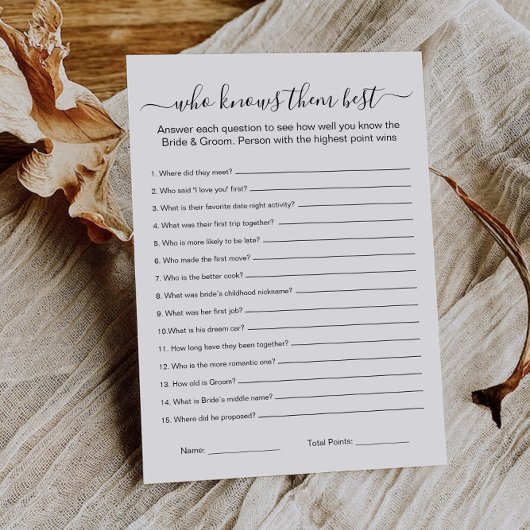 who knows them best
Answer each question to see how well you know the
Bride & Groom. Person with the highest point wins
1. Where did they meet?
2. Who said "I love you" first?
3. What is their favorite date night activity?
4. What was their first trip together?
5. Who is more likely to be late?
6. Who made the first move?
7. Who is the better cook?
8. What was bride's childhood nickname?
9. What was her first job?
10.What is his dream car?
11. How long have they been together?
12. Who is the more romantic one?
13. How old is Groom?
14. What is Bride's middle name?
15. Where did he proposed?
Name: Total Points: